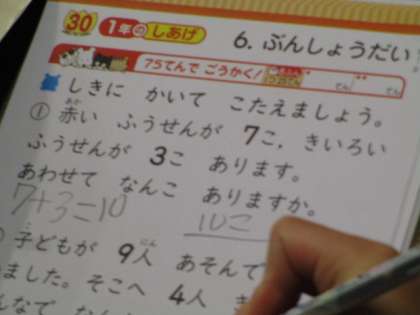 30 1年のしあげ 6. ぶんしょうだい
75てんで ごうかく! てん てん
しきに かいて こたえましょう。
① 赤い ふうせんが 7こ, きいろい
ふうせんが 3こ あります。
あわせて なんこ ありますか。
7+3=10 10こ
子どもが 9人 あそんで
ました。そこへ 4人
んなで なん